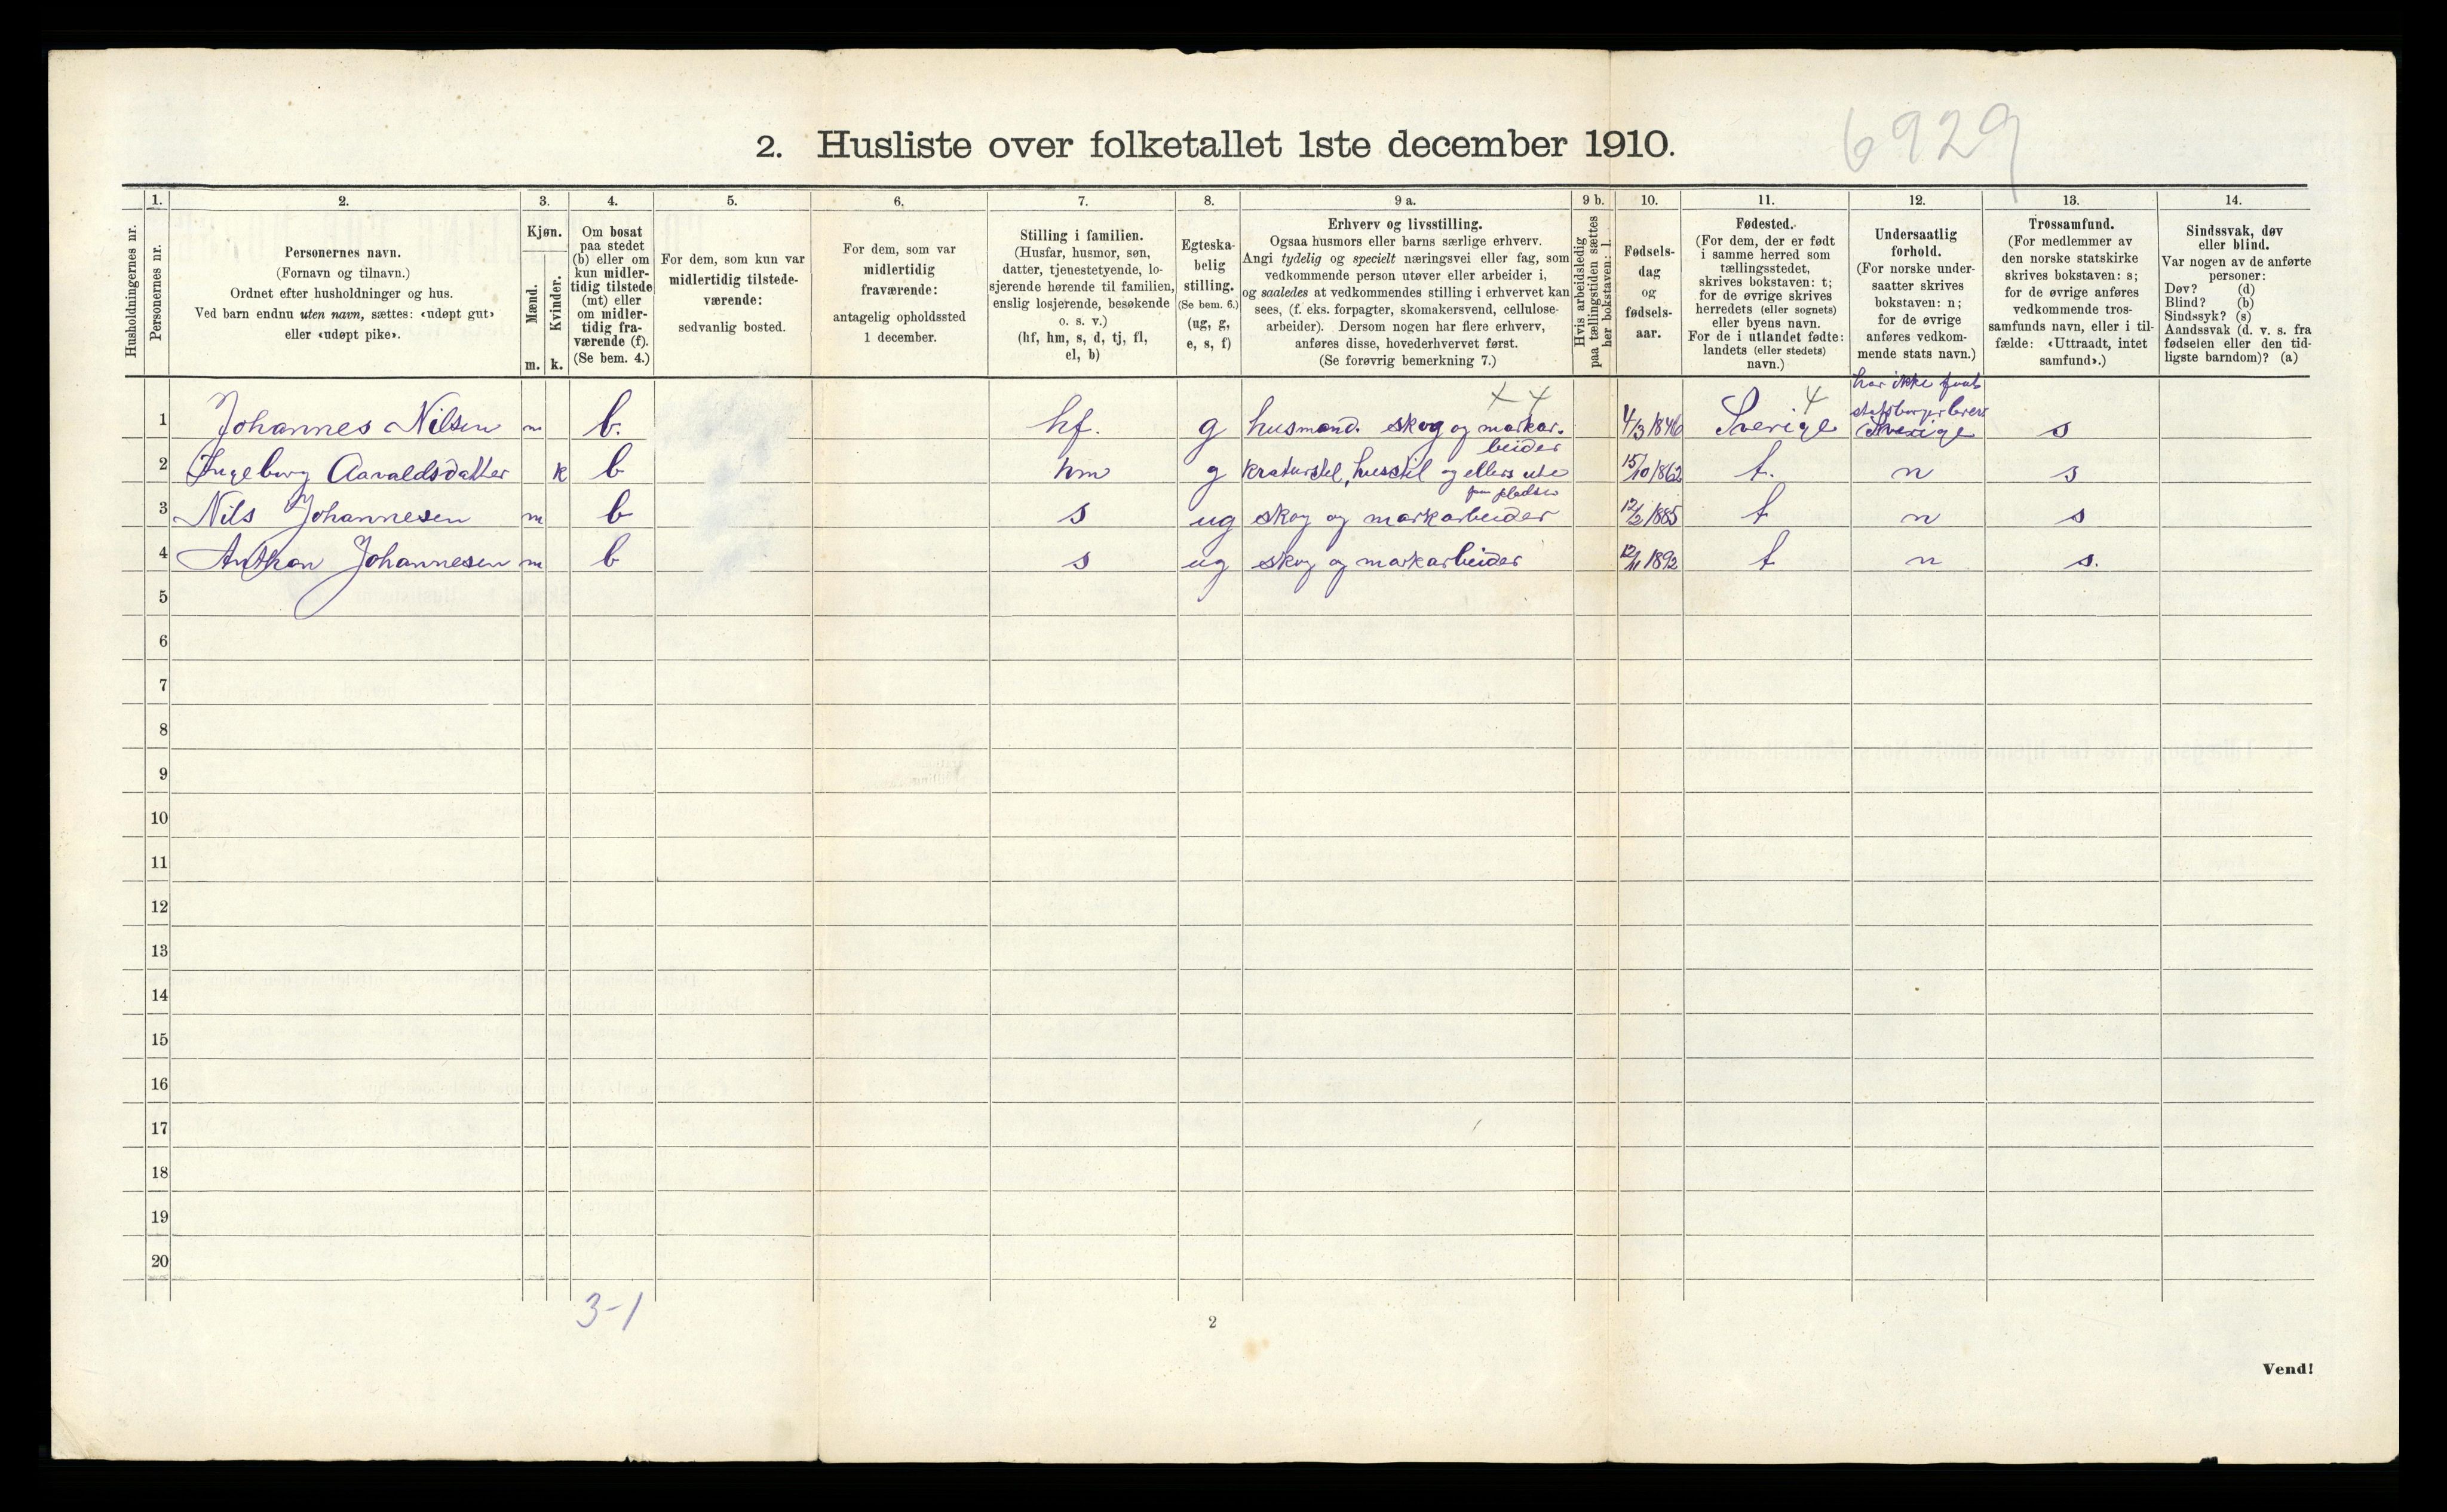 6929
2. Husliste over folketallet 1ste december 1910.
Husholdningernes nr.
1.
Personernes nr.
2.
Personernes navn.
(Fornavn og tilnavn.)
Ordnet efter husholdninger og hus.
Ved barn endnu uten navn, sættes: «udøpt gut»
eller «udøpt pike».
3.
Kjøn.
Mænd.
Kvinder.
m. k.
4.
Om bosat
paa stedet
(b) eller om
kun midler-
tidig tilstede
(mt) eller
om midler-
tidig fra-
værende (f).
(Se bem. 4.)
5.
For dem, som kun var
midlertidig tilstede-
værende:
sedvanlig bosted.
6.
For dem, som var
midlertidig
fraværende:
antagelig opholdssted
1 december.
7.
Stilling i familien.
(Husfar, husmor, søn,
datter, tjenestetyende, lo-
sjerende hørende til familien,
enslig losjerende, besøkende
o. s. v.)
(hf, hm, s, d, tj, fl,
el, b)
8.
Egteska-
belig
stilling.
(Se bem. 6.)
(ug, g,
e, s, f)
9 a.
Erhverv og livsstilling.
Ogsaa husmors eller barns særlige erhverv.
Angi tydelig og specielt næringsvei eller fag, som
vedkommende person utøver eller arbeider i,
og saaledes at vedkommendes stilling i erhvervet kan
sees, (f. eks. forpagter, skomakersvend, cellulose-
arbeider). Dersom nogen har flere erhverv,
anføres disse, hovederhvervet først.
(Se forøvrig bemerkning 7.)
9 b.
Hvis arbeidsledig
paa tællingstiden sættes
her bokstaven: l.
10.
Fødsels-
dag
og
fødsels-
aar.
11.
Fødested.
(For dem, der er født
i samme herred som
tællingsstedet,
skrives bokstaven: t;
for de øvrige skrives
herredets (eller sognets)
eller byens navn.
For de i utlandet fødte:
landets (eller stedets)
navn.)
12.
Undersaatlig
forhold.
(For norske under-
saatter skrives
bokstaven: n;
for de øvrige
anføres vedkom-
mende stats navn.)
13.
Trossamfund.
(For medlemmer av
den norske statskirke
skrives bokstaven: s;
for de øvrige anføres
vedkommende tros-
samfunds navn, eller i til-
fælde: «Uttraadt, intet
samfund».)
14.
Sindssvak, døv
eller blind.
Var nogen av de anførte
personer:
Døv? (d)
Blind? (b)
Sindssyk? (s)
Aandssvak (d. v. s. fra
fødselen eller den tid-
ligste barndom)? (a)
har ikke
1 Johannes Nilsen m b. hf. g husmand. skog og markar. 4/3 1846 Sverige 4 Sverige s
beider
2 Ingeborg Aavaldsdatter k b hm g kreaturstel, husstel og ellers ute 15/10 1862 t. n s
paa pladsen
3 Nils Johannesen m b s ug skog og markarbeider 12/2 1885 t n s
4 Anthon Johannesen m b s ug skog og markarbeider 12/11 1892 t n s.
5
6
7
8
9
10
11
12
13
14
15
16
17
18
19
20
3-1
2
Vend!